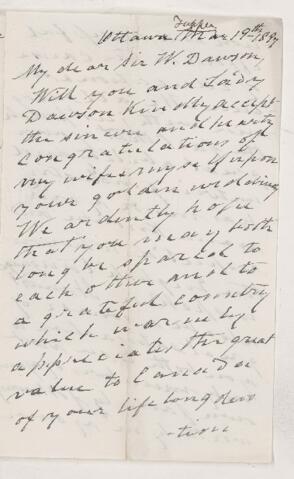 Tupper
Ottawa Mar 19th 1897
My dear Sir W. Dawson,
Will you and Lady
Dawson Kindly accept
the sincere and hearty
congratulations of
my wife & myself upon
your golden wedding
We ardently hope
that you may both
long be spared to
each other and to
a grateful country
which warmly
appreciates the great
value to Canada
of your life long devo
-tion